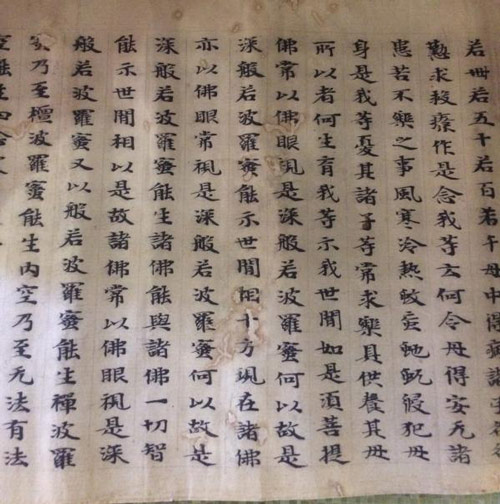 若卌五十若百若千母中得病諸子各各
懃求救療作是念我等云何令母得安无諸
患苦不樂之事風寒冷熱蚊虻虵蚖侵犯母
身是我等憂其諸子等常求樂具供養其母
所以者何生育我等示我世間如是湏菩提
佛常以佛眼視是深般若波羅蜜何以故是
深般若波羅蜜能示世間相十方現在諸佛
亦以佛眼常視是深般若波羅蜜何以故是
深般若波羅蜜能生諸佛能與諸佛一切智
能示世間相以是故諸佛常以佛眼視是深
般若波羅蜜又以般若波羅蜜能生禪波羅
蜜乃至檀波羅蜜能生內空乃至无法有法
空能生四念